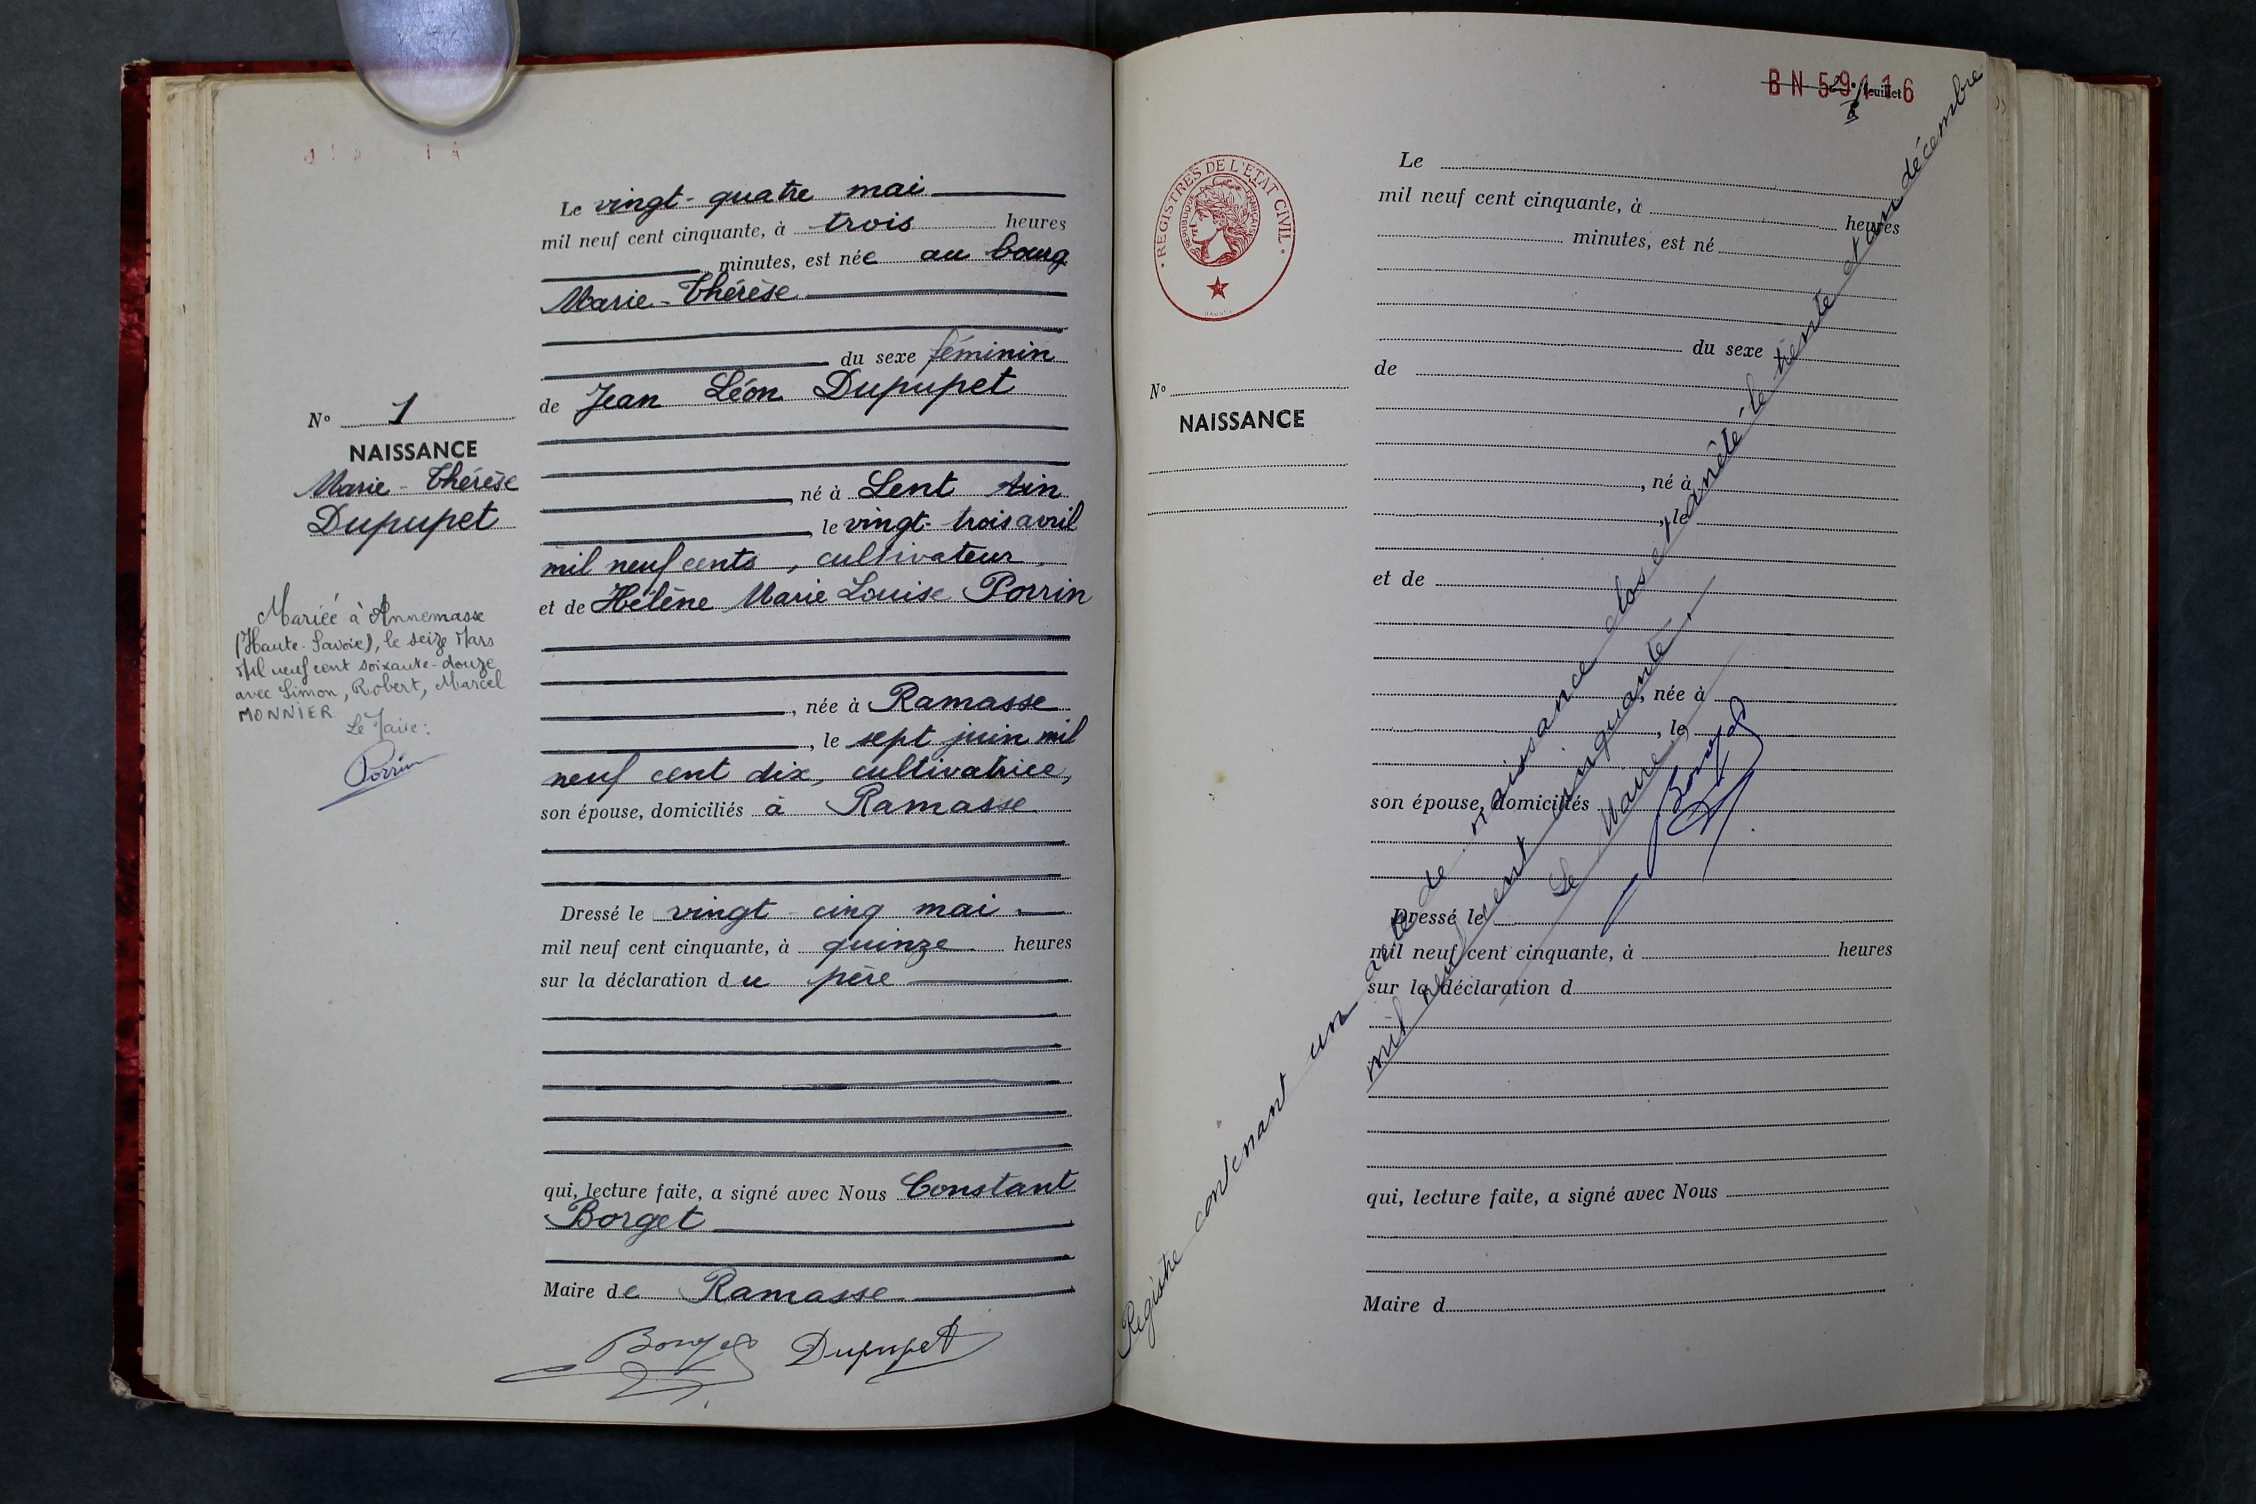 N° 1
NAISSANCE
Marie-Thérèse
Dupupet
Mariée à Annemasse
(Haute-Savoie), le seize Mars
Mil neuf cent soixante-douze
avec Simon, Robert, Marcel
MONNIER
Le Maire:
Porrin
Le vingt-quatre mai
mil neuf cent cinquante, à trois heures
minutes, est née au bourg
Marie-Thérèse
du sexe féminin
de Jean Léon Dupupet
, né à Lent Ain
, le vingt-trois avril
mil neuf cents, cultivateur
et de Hélène Marie Louise Porrin
, née à Ramasse
, le sept juin mil
neuf cent dix, cultivatrice,
son épouse, domiciliés à Ramasse
Dressé le vingt-cinq mai
mil neuf cent cinquante, à quinze heures
sur la déclaration du père
qui, lecture faite, a signé avec Nous Constant
Borget
Maire de Ramasse
Borget Dupupet
BN 59116
feuillet
REGISTRES DE L'ETAT CIVIL
REPUBLIQUE FRANÇAISE
N°
NAISSANCE
Le
mil neuf cent cinquante, à heures
minutes, est né
du sexe
de
, né à
, le
et de
, née à
, le
son épouse, domiciliés
Dressé le
mil neuf cent cinquante, à heures
sur la déclaration d
qui, lecture faite, a signé avec Nous
Maire d
Registre contenant un acte de naissance clos et arrêté le trente et un décembre
mil neuf cent cinquante.
Le Maire
Borget